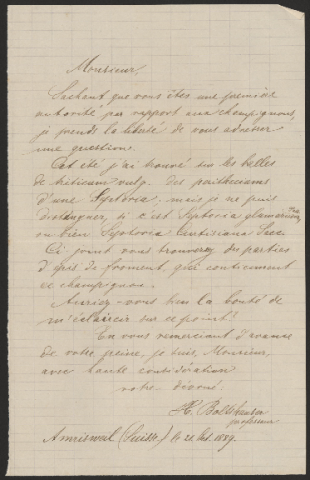 Monsieur,
Sachant que vous êtes une première
autorité par rapport aux champignons,
je prends la liberté de vous adresser
une questions.
Cet été j'ai trouvé sur les balles
de triticum vulg. des peritheciums
d'une Septoria; mais je ne puis
distinguer, si c'est Septoria glumarum Pass.
ou bien Septoria Curtisiana Sacc.
Ci joint vous trouverez des parties
d'épis de froment, qui contiennent
ce champignon.
Auriez-vous bien la bonté de
m'éclaircir sur ce point?
En vous remerciant d'avance
de votre peine, je suis, Monsieur,
avec haute considération
votre dévoué
H. Boltshauser
professeur
Amrisweil (Suisse) le 21 1889.